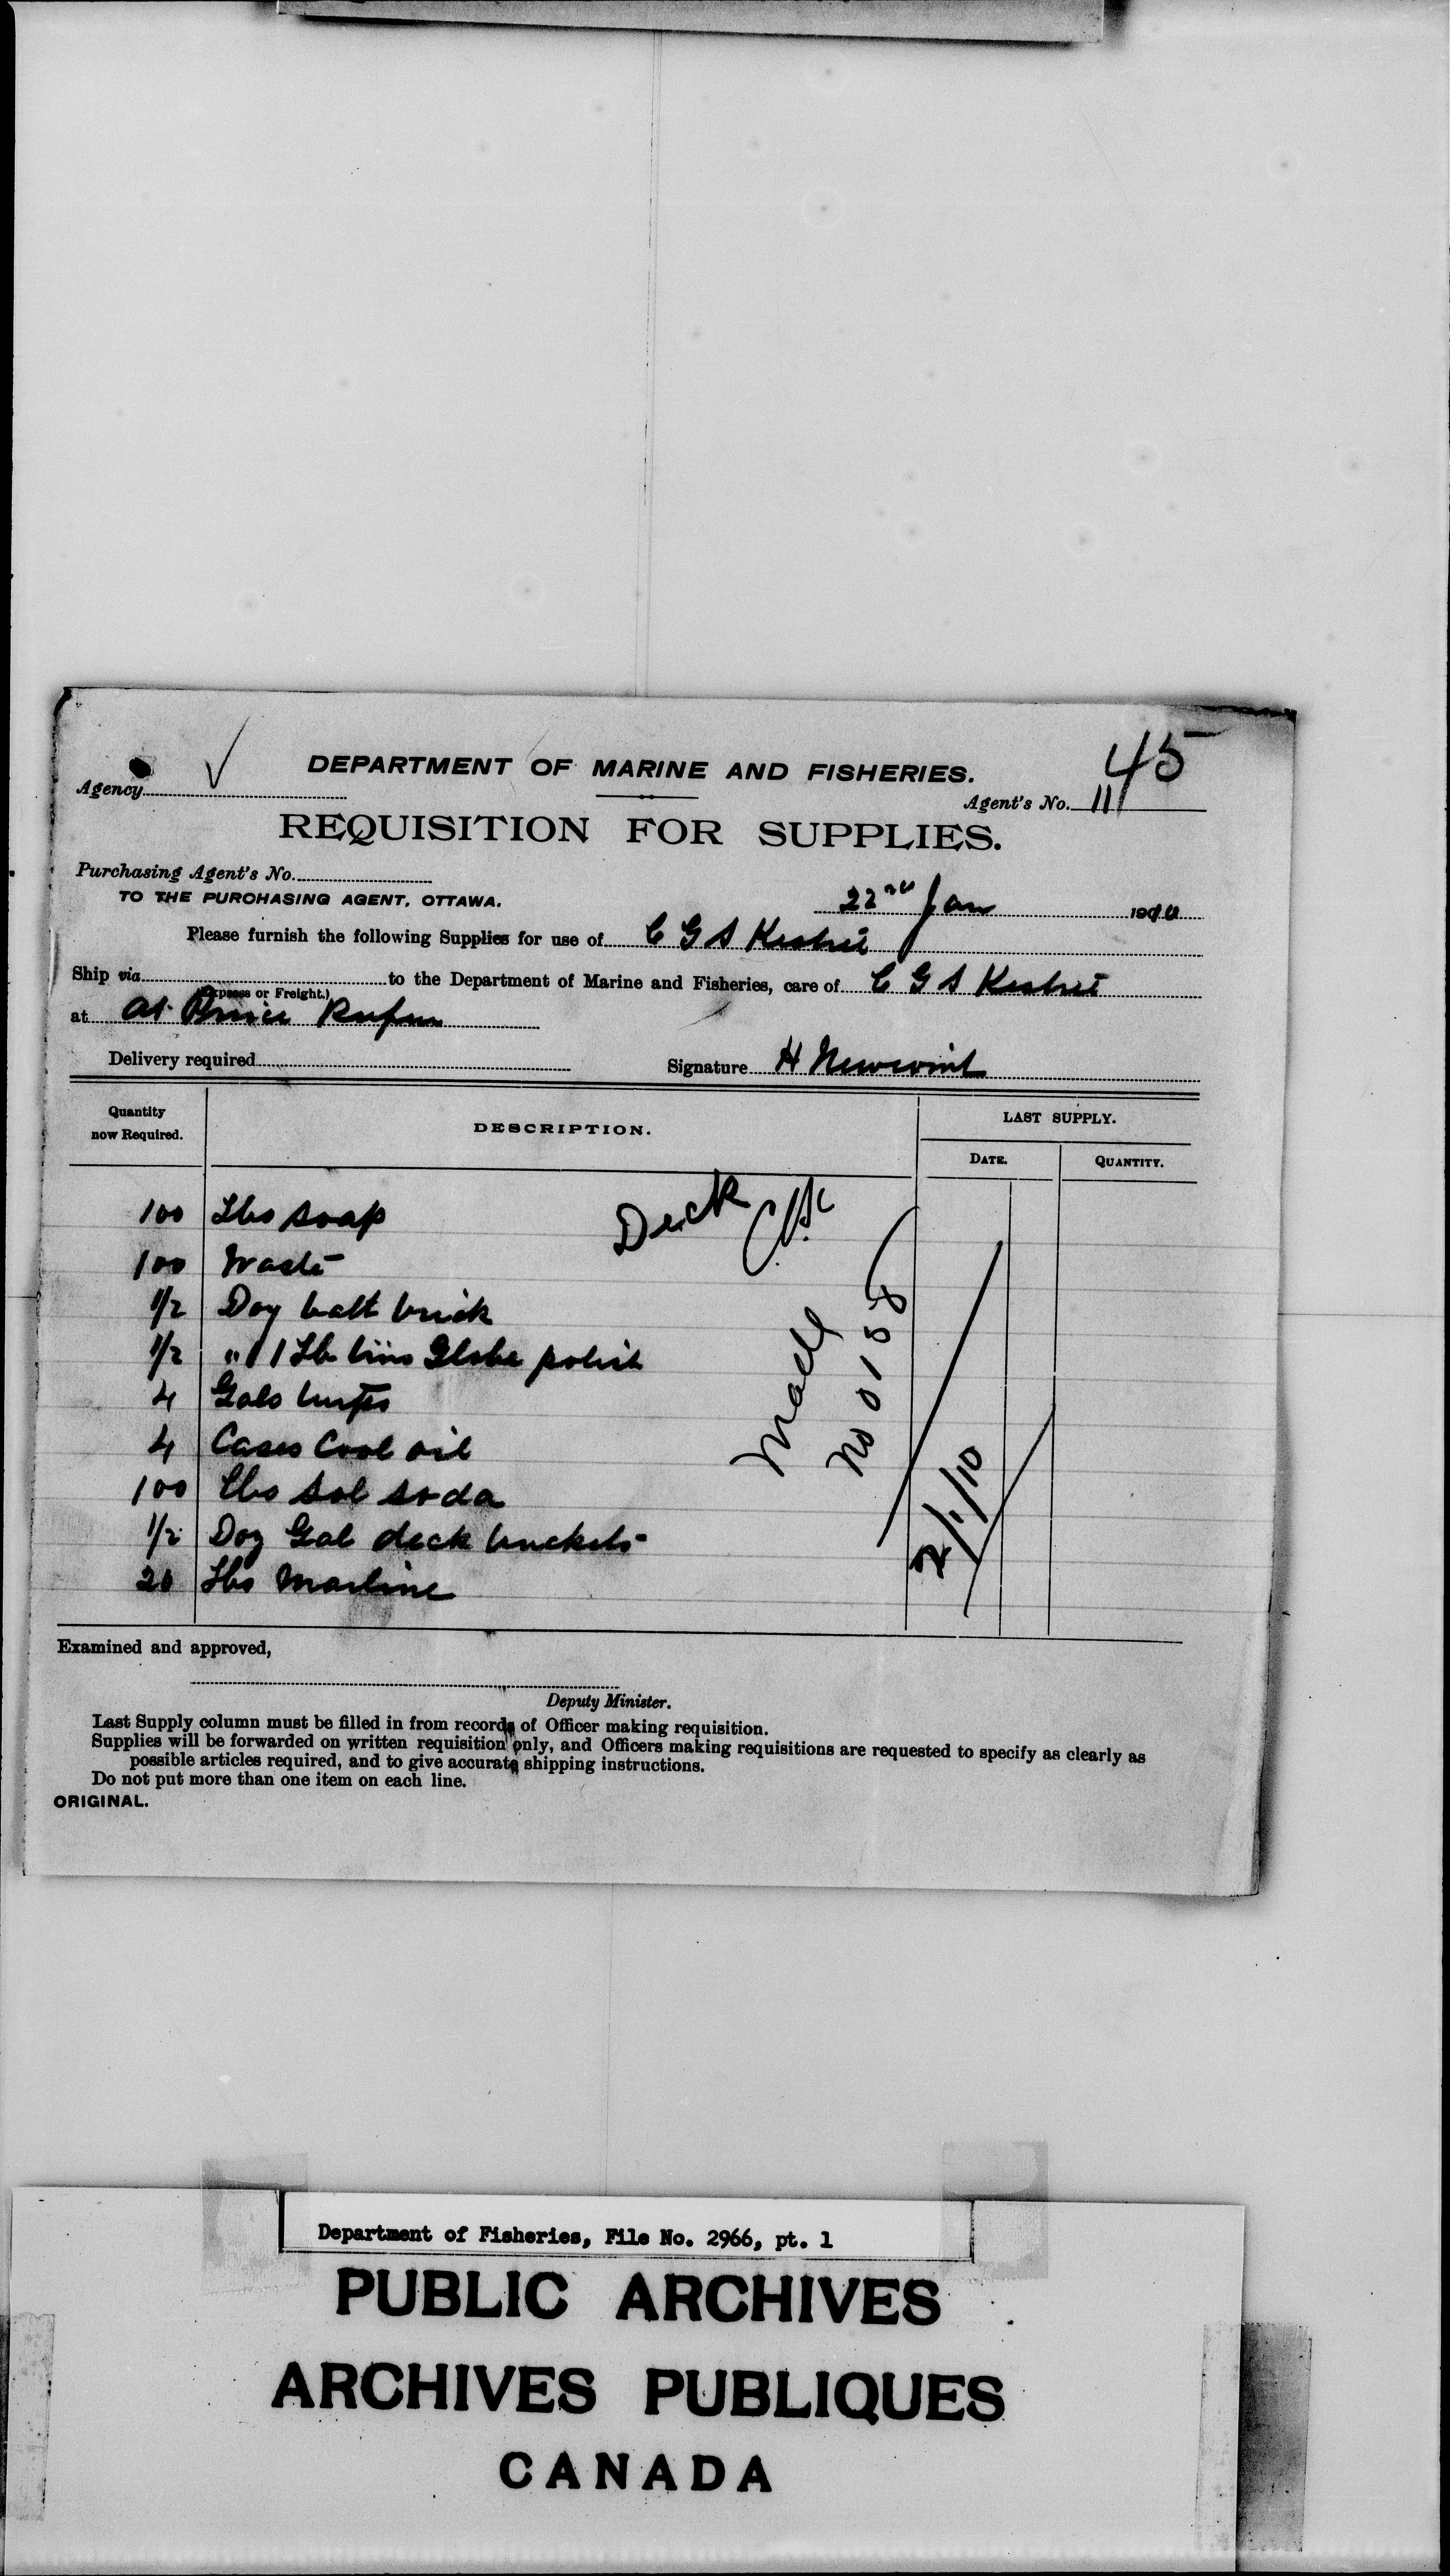 DEPARTMENT OF MARINE AND FISHERIES.
45
Agency
Agent's No. 11
REQUISITION FOR SUPPLIES.
Purchasing Agent's No.
TO THE PURCHASING AGENT, OTTAWA.
22nd Jan 1910
Please furnish the following Supplies for use of C G S Kestrel
Ship via to the Department of Marine and Fisheries, care of C G S Kestrel
(Express or Freight.)
at at Prince Rupert
Delivery required
Signature H Newcomb
Quantity now Required.
DESCRIPTION.
LAST SUPPLY.
DATE.
QUANTITY.
Deck
100 Lbs soap
100 Waste
1/2 Doz batt brick
1/2 " 1 Lb tins Globe polish
4 Gals turps
4 Cases Coal oil
100 Lbs Sal soda
1/2 Doz Gal deck buckets
20 Lbs Marline
No 0158
2/1/10
Examined and approved,
Deputy Minister.
Last Supply column must be filled in from records of Officer making requisition.
Supplies will be forwarded on written requisition only, and Officers making requisitions are requested to specify as clearly as
possible articles required, and to give accurate shipping instructions.
Do not put more than one item on each line.
ORIGINAL.
Department of Fisheries, File No. 2966, pt. 1
PUBLIC ARCHIVES
ARCHIVES PUBLIQUES
CANADA